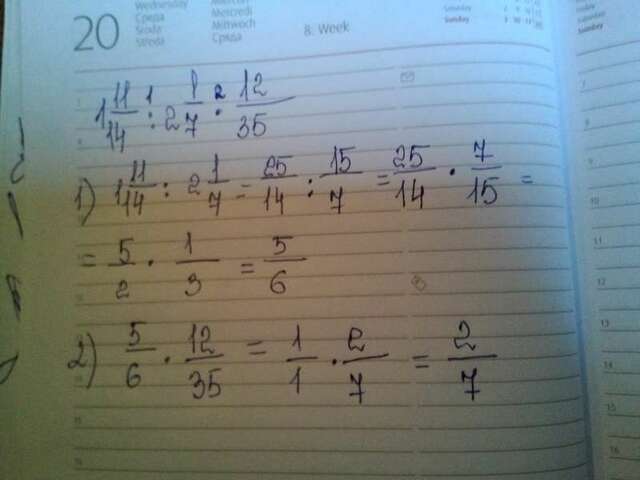 20
Wednesday
Среда
Środa
Streda
Mercredi
Mittwoch
Среда
8. Week
Saturday
Sunday
1 11/14 : 2 1/7 · 12/35
1) 1 11/14 : 2 1/7 = 25/14 : 15/7 = 25/14 · 7/15 =
= 5/2 · 1/3 = 5/6
2) 5/6 · 12/35 = 1/1 · 2/7 = 2/7
7
8
9
10
11
12
13
14
15
16